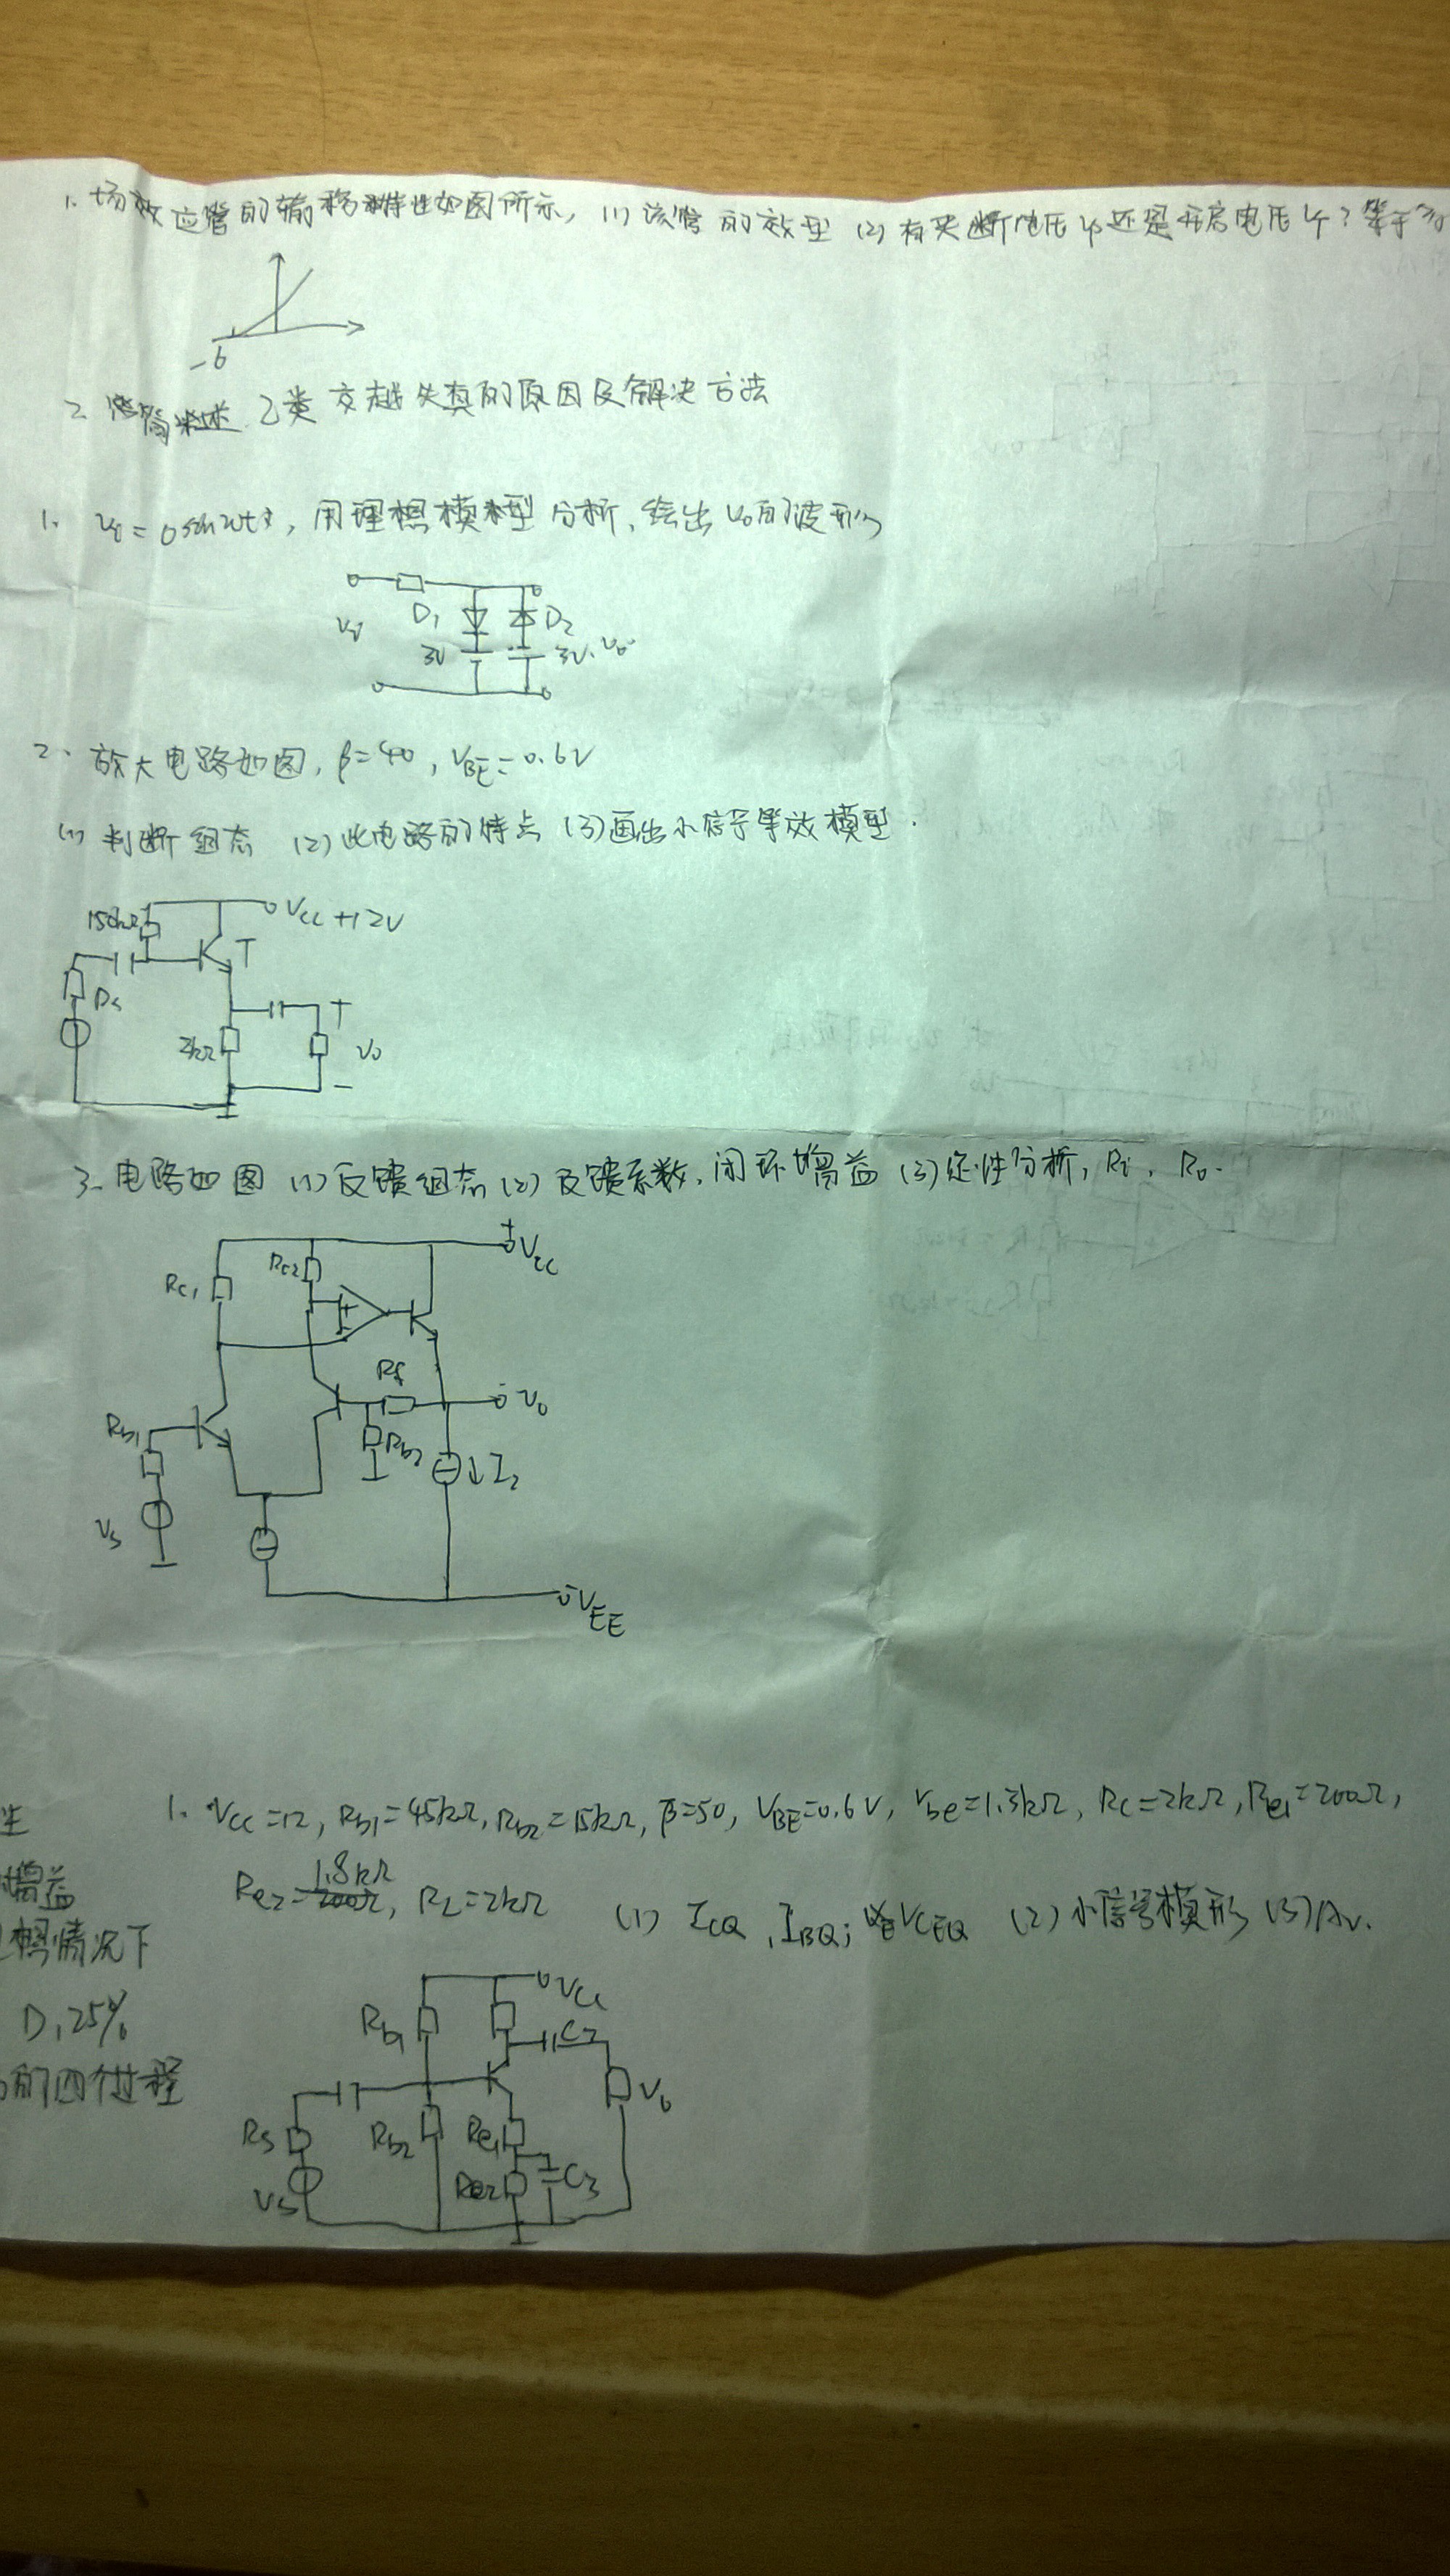 1. 场效应管的输移特性如图所示, (1) 该管的效型 (2) 有夹断电压 Vp 还是开启电压 VT? 等于
-6
2. 简述 乙类交越失真的原因及解决方法
1. 用理想模型分析, 绘出 Vo的波形
D1 D2
3V 3V Vo
2. 放大电路如图, β=40, VBE=0.6V
(1) 判断组态 (2) 此电路的特点 (3) 画出小信号等效模型.
150kΩ VCC +12V
T
Rs +
2kΩ Vo
-
3. 电路如图 (1) 反馈组态 (2) 反馈系数, 闭环增益 (3) 定性分析, Ri, Ro.
+VCC
Rc1 Rc2
+
-
Rf Vo
Rb1 Rb2 ↓I2
Vs
-VEE
1. VCC=12, Rb1=45kΩ, Rb2=15kΩ, β=50, VBE=0.6V, rbe=1.3kΩ, Rc=2kΩ, Re1=200Ω,
Re2=1.8kΩ, RL=2kΩ (1) ICQ, IBQ; VCEQ (2) 小信号模形 (3) Av.
生
增益
想情况下
D, 25%
的四个过程
VCC
Rb1 C2
Vo
Rs Rb2 Re1
Vs Re2 C3